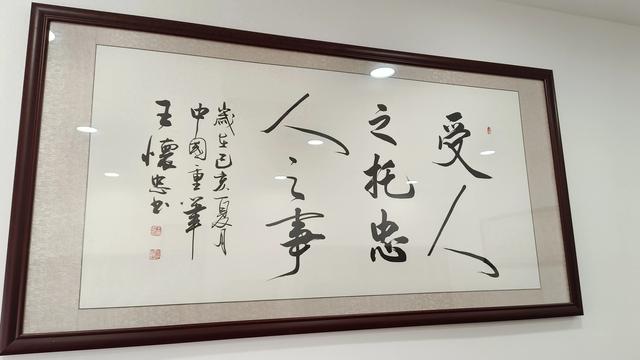 受人
之托忠
人之事
歲在己亥夏月
中國重華
王懷忠书